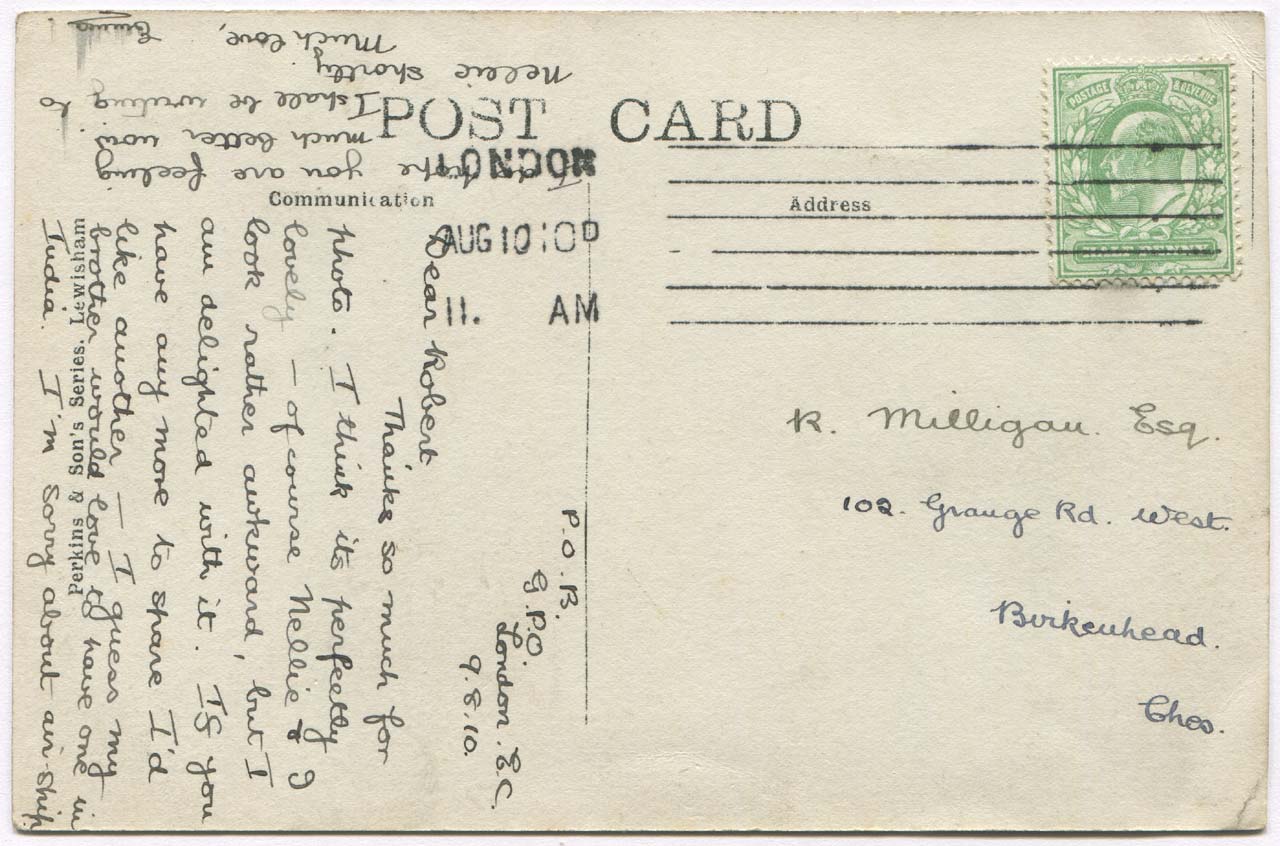 POST CARD
Communication
Address
POSTAGE & REVENUE
LONDON
AUG 10 10
11. AM
Perkins & Son's Series. Lewisham
P.O.B.
G.P.O.
London. E.C.
9.8.10.
Dear Robert
Thanks so much for
photo. I think its perfectly
lovely – of course Nellie & I
look rather awkward, but I
am delighted with it. If you
have any more to spare I'd
like another – I guess my
brother would love to have one in
India. I'm sorry about air-ship
you are feeling
much better now
I shall be writing to
Nellie shortly
Much love,
R. Milligan. Esq.
102. Grange Rd. West.
Birkenhead.
Ches.